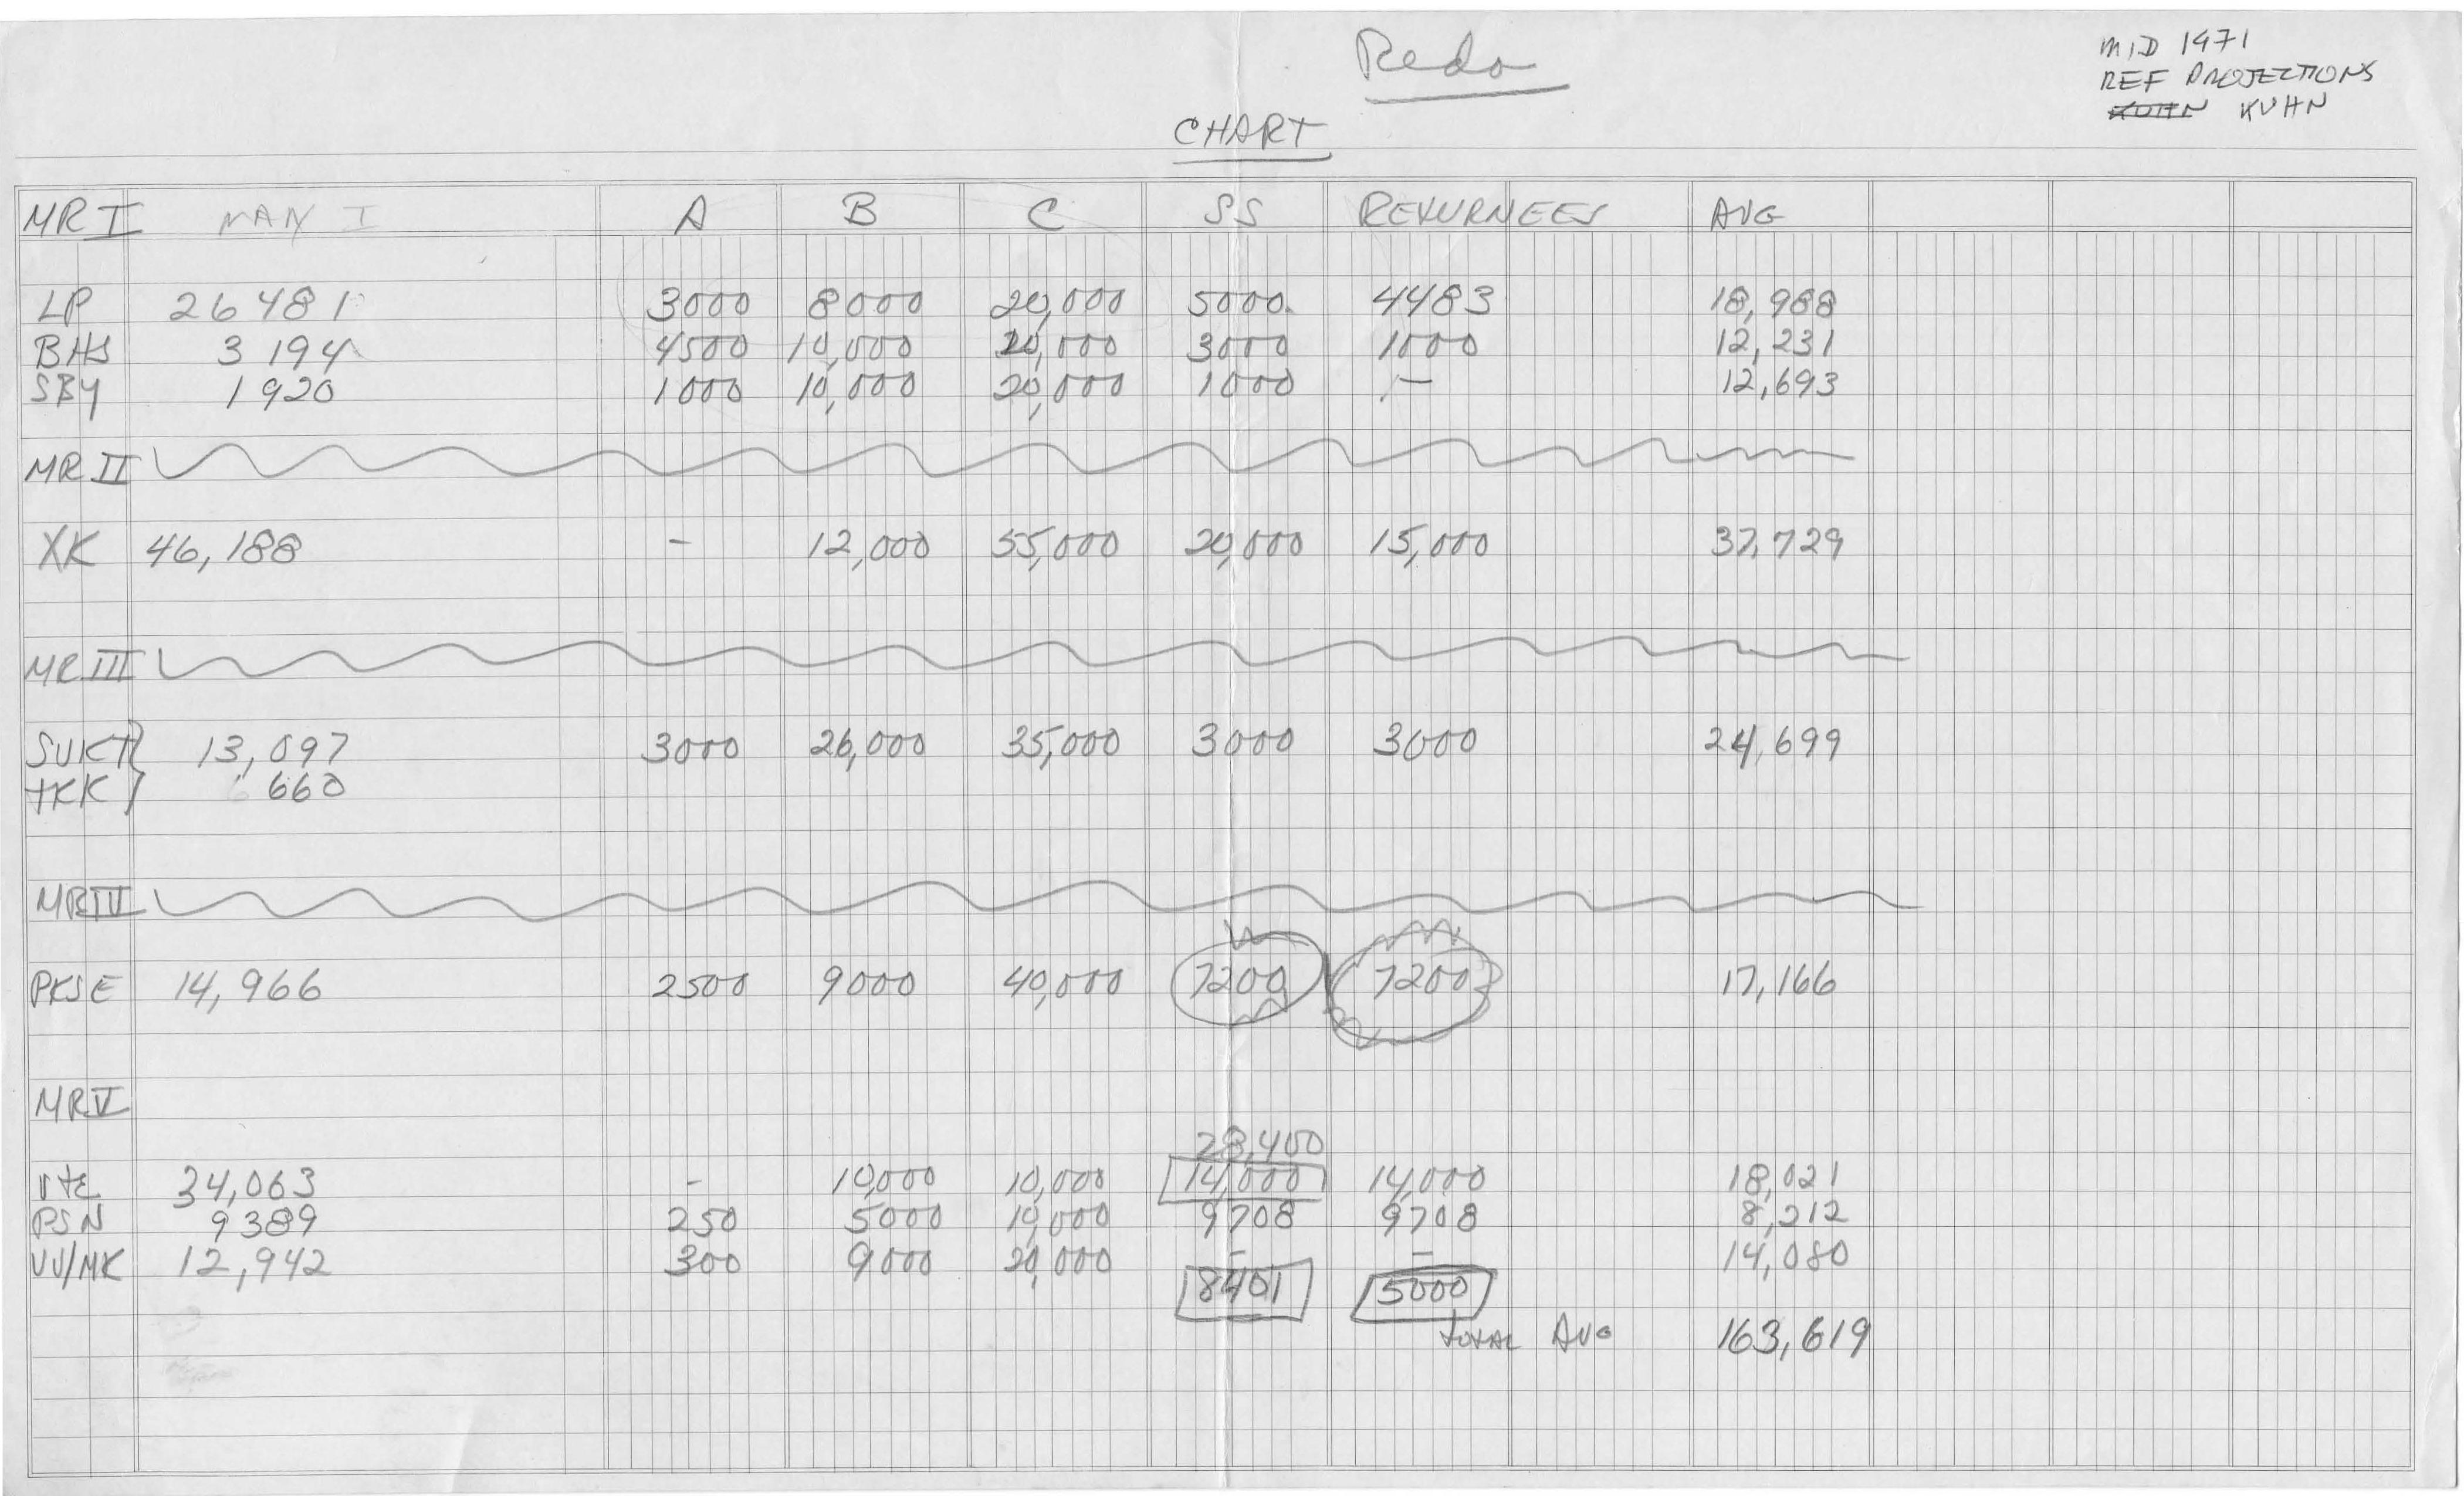 Redo
MID 1971
REF PROJECTIONS
KUHN KUHN
CHART
MR I MAN I A B C SS RETURNEES AVG
LP 26481 3000 8000 20,000 5000 4483 18,988
BHS 3194 4500 10,000 20,000 3000 1000 12,231
SBY 1920 1000 10,000 20,000 1000 - 12,693
MR II
XK 46,188 - 12,000 55,000 20,000 15,000 37,729
MR III
SVKT 13,097 3000 26,000 35,000 3000 3000 24,699
TKK 660
MR IV
PKSE 14,966 2500 9000 40,000 7200 7200 17,166
MR V
28,400
VTE 34,063 - 10,000 10,000 14,000 14,000 18,021
PSN 9389 250 5000 10,000 9708 9708 8,212
VV/MK 12,942 300 9000 20,000 - - 14,080
8401 5000
TOTAL AVG 163,619